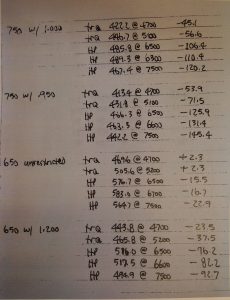 750 w/ 1.000 trq 422.2 @ 4700 -45.1
trq 446.7 @ 5100 -56.6
HP 485.8 @ 6500 -106.4
HP 484.3 @ 6300 -110.4
HP 467.4 @ 7500 -120.2
750 w/ .950 trq 413.4 @ 4700 -53.9
trq 431.8 @ 5100 -71.5
HP 466.3 @ 6500 -125.9
HP 463.3 @ 6600 -131.4
HP 442.2 @ 7500 -145.4
650 unrestricted trq 469.6 @ 4700 +2.3
trq 505.6 @ 5200 +2.3
HP 576.7 @ 6500 -15.5
HP 583.0 @ 6700 -16.7
HP 564.7 @ 7500 -22.9
650 w/ 1.200 trq 443.8 @ 4700 -23.5
trq 465.8 @ 5200 -37.5
HP @ 6500 -76.2
HP 517.5 @ 6600 -82.2
HP 494.9 @ 7500 -92.7